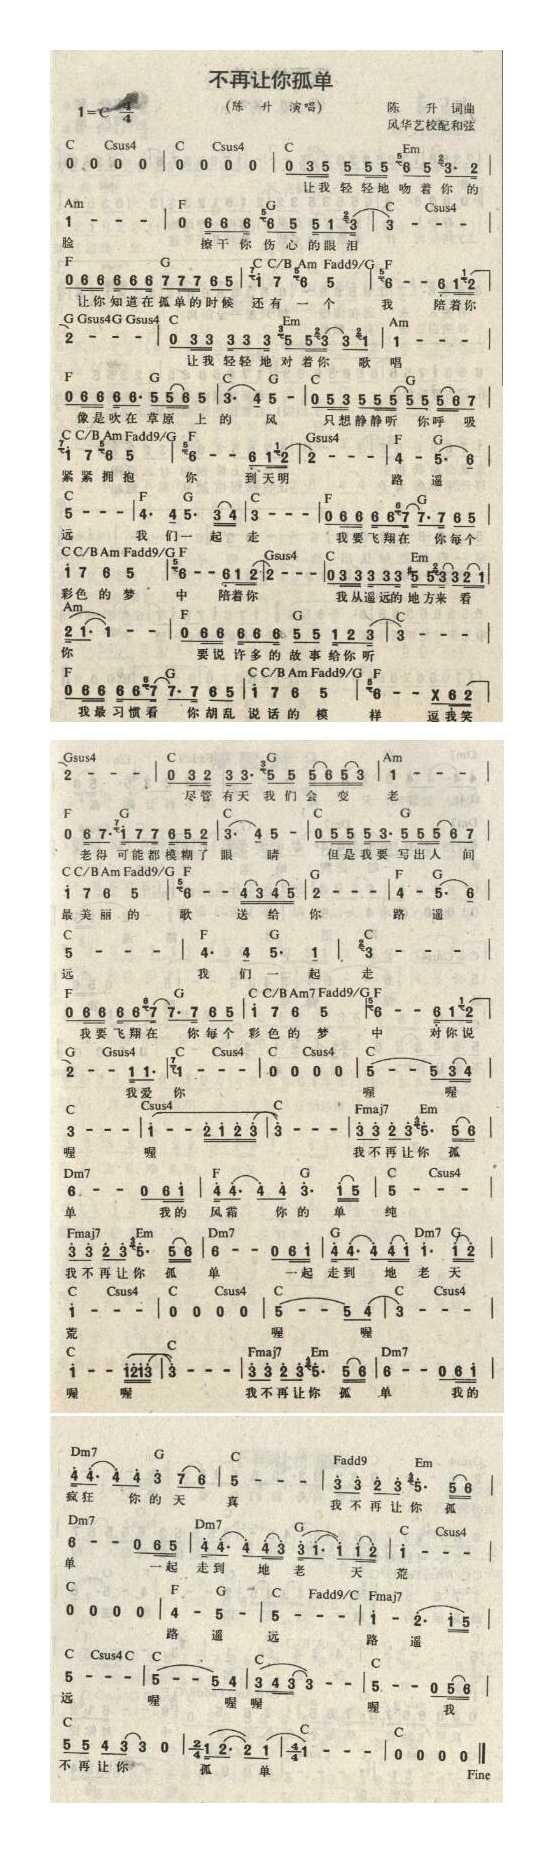 不再让你孤单
(陈 升 演唱)
1=C 4/4
陈 升 词曲
风华艺校配和弦
C Csus4 C Csus4 C Em
0 0 0 0 | 0 0 0 0 | 0 35 5 55 6 5 3· 2
让我 轻轻地 吻 着 你 的
Am F G C Csus4
1 - - - | 0 66 6 6 5 5 1 3 | 3 - - -
脸 擦干 你 伤 心 的眼 泪
F G C C/B Am Fadd9/G F
0 66 666 777 65 | 1 7 6 5 | 6 - - 6 1 2
让你 知道在 孤单的 时候 还 有 一 个 我 陪着你
G Gsus4 G Gsus4 C Em Am
2 - - - | 0 33 333 5 5 3 3 1 | 1 - - -
让我 轻轻地 对着你 歌 唱
F G C G C G
0 66 66· 5565 | 3· 4 5 - | 0 535 555 5567
像是 吹在 草原 上 的 风 只想 静静听 你呼 吸
C C/B Am Fadd9/G F Gsus4 F G
1 7 6 5 | 6 - - 6 1 2 | 2 - - - | 4 - 5· 6
紧 紧 拥 抱 你 到天明 路 遥
C F G C F G
5 - - - | 4· 4 5· 34 | 3 - - - | 0 66 6 67 7· 7 65
远 我 们一 起 走 我要 飞翔在 你每个
C C/B Am Fadd9/G F Gsus4 C Em
1 7 6 5 | 6 - - 6 1 2 | 2 - - - | 0 33 333 5 53 321
彩色 的 梦 中 陪着你 我从 遥远的 地方来 看
Am F G C
2 1· 1 - - | 0 66 666 5 5 1 2 3 | 3 - - -
你 要说 许多的 故 事 给你 听
F G C C/B Am Fadd9/G F
0 66 6 67 7· 7 65 | 1 7 6 5 | 6 - - X 6 2
我最 习惯看 你胡乱 说 话 的 模 样 逗我笑
Gsus4 C G Am
2 - - - | 0 32 33· 5 5 5653 | 1 - - -
尽管 有天 我 们 会 变 老
F G C G C G
0 67· 177 652 | 3· 4 5 - | 0 555 53· 555 67
老得 可能都 模糊了 眼 睛 但是我 要 写出人 间
C C/B Am Fadd9/G F G F G
1 7 6 5 | 6 - - 4345 | 2 - - - | 4 - 5· 6
最 美 丽 的 歌 送 给 你 路 遥
C F G C
5 - - - | 4· 4 5· 1 | 3 - - -
远 我 们 一 起 走
F G C C/B Am7 Fadd9/G F
0 66 6 67 7· 7 65 | 1 7 6 5 | 6 - - 6 1 2
我要 飞翔在 你每个 彩色 的 梦 中 对你说
G Gsus4 C Csus4 C Csus4 C
2 - - 11· | 1 - - - | 0 0 0 0 | 5 - - 5 34
我爱 你 喔 喔
C Csus4 C Fmaj7 Em
3 - - - | 1 - - 2123 | 3 - - - | 3323 5· 56
喔 喔 我不再让你 孤
Dm7 F G C Csus4
6 - - 0 61 | 44· 4 4 3· 15 | 5 - - -
单 我的 风霜 你 的 单 纯
Fmaj7 Em Dm7 G Dm7 G
3323 5· 56 | 6 - - 0 61 | 44· 441 1· 12
我不再让你 孤 单 一起 走到 地 老 天
C Csus4 C Csus4 C Csus4 C Csus4
1 - - - | 0 0 0 0 | 5 - - 5 4 | 3 - - -
荒 喔 喔
C C Fmaj7 Em Dm7
1 - - 1213 | 3 - - - | 3323 5· 56 | 6 - - 0 61
喔 喔 我不再让你 孤 单 我的
Dm7 G C Fadd9 Em
44· 4 4 3 76 | 5 - - - | 3 3 2 3 5· 56
疯狂 你 的 天 真 我 不 再 让 你 孤
Dm7 Dm7 G C Csus4
6 - - 0 65 | 44· 443 31· 112 | 1 - - -
单 一起 走到 地 老 天 荒
C F G C Fadd9/C Fmaj7
0 0 0 0 | 4 - 5 - | 5 - - - | 1 - 2· 15
路 遥 远 路 遥
C Csus4 C C C C
5 - - - | 5 - - 5 4 | 3433 - - | 5 - - 0 56
远 喔 喔 喔 喔 我
C C C
5 5 4 3 3 0 | 2/4 1 2· 2 1 | 4/4 1 - - - | 0 0 0 0
不 再 让 你 孤 单
Fine